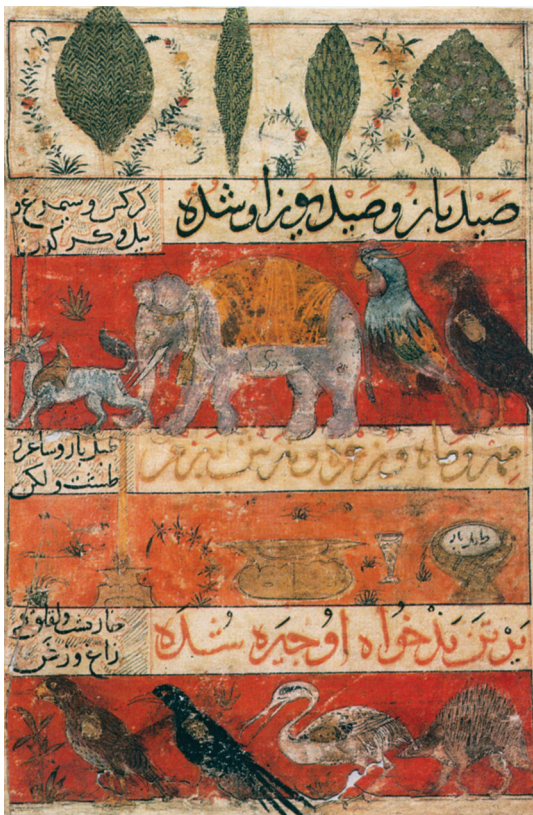 صید باز و صید یوز او شده
کرکس و سیمرغ و
پیل و کرکدن
طبل باز و ساغر و
طشت و لکن
طبل باز
بر تن بذخواه او چیره شده
خارپشت و لقلق و
زاغ و زغن